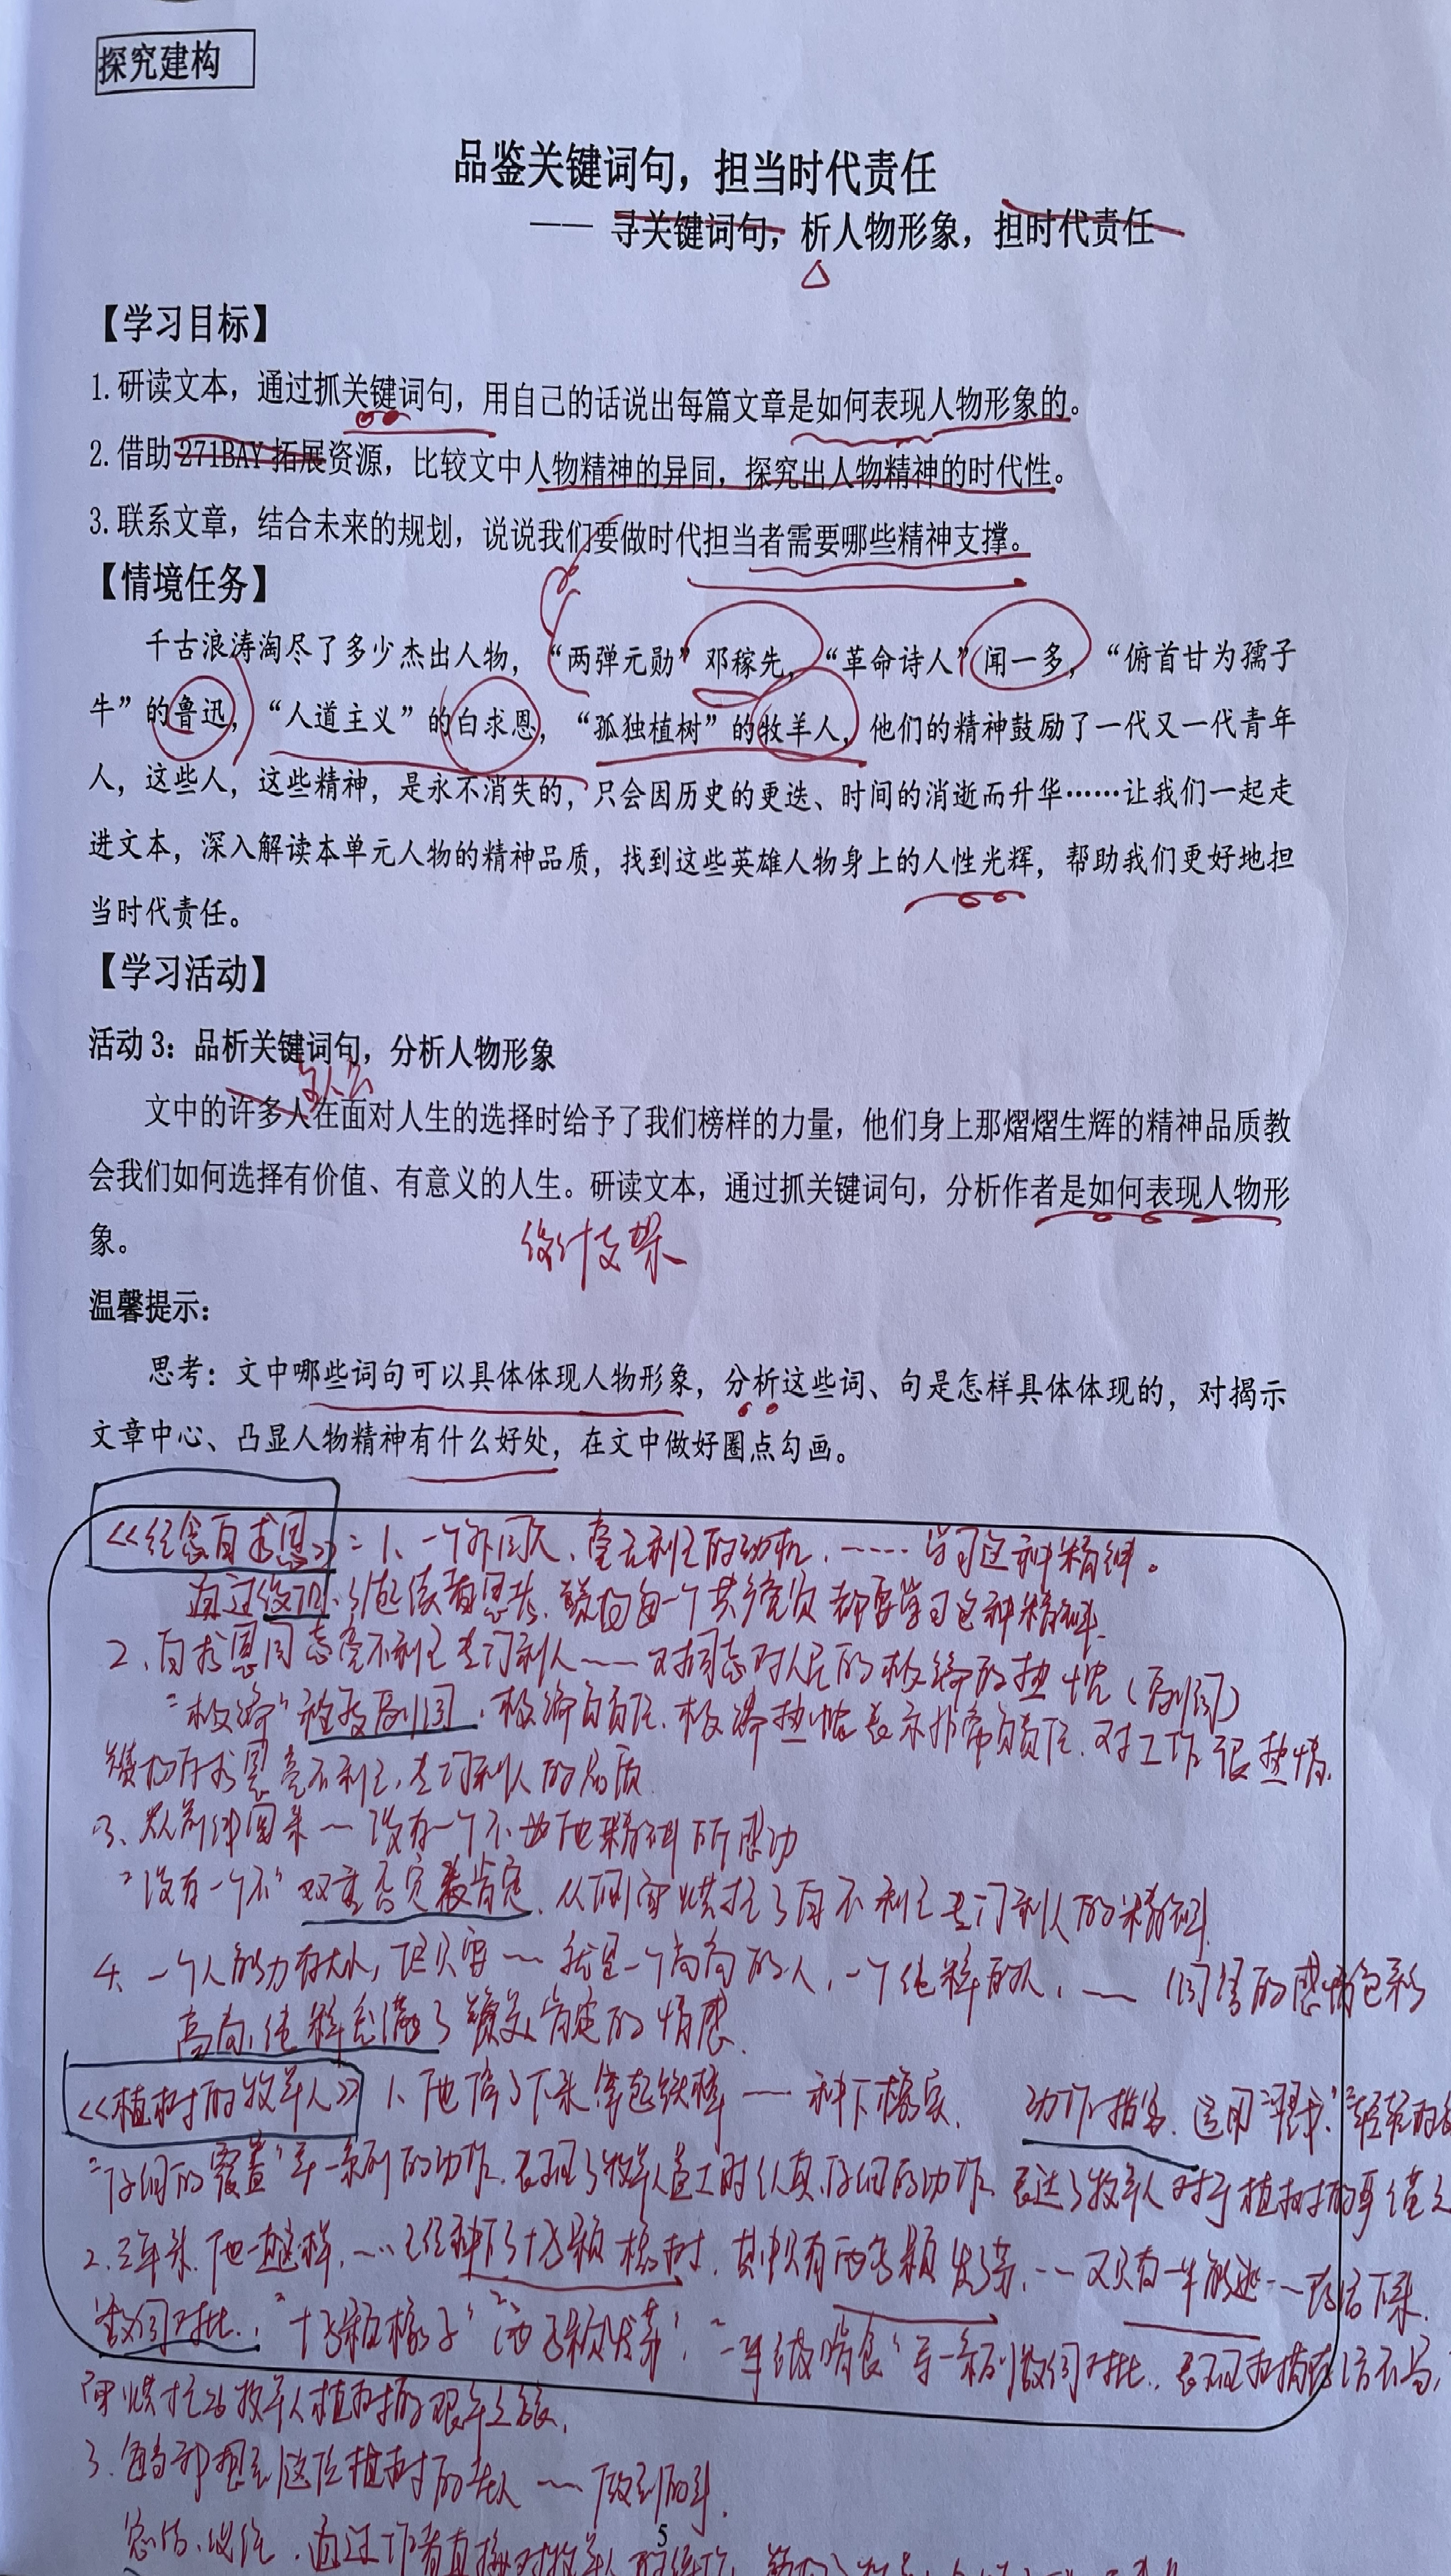 探究建构
品鉴关键词句，担当时代责任
—— 寻关键词句，析人物形象，担时代责任
【学习目标】
1.研读文本，通过抓关键词句，用自己的话说出每篇文章是如何表现人物形象的。
2.借助 271BAY 拓展资源，比较文中人物精神的异同，探究出人物精神的时代性。
3.联系文章，结合未来的规划，说说我们要做时代担当者需要哪些精神支撑。
【情境任务】
千古浪涛淘尽了多少杰出人物，“两弹元勋”邓稼先，“革命诗人”闻一多，“俯首甘为孺子
牛”的鲁迅，“人道主义”的白求恩，“孤独植树”的牧羊人，他们的精神鼓励了一代又一代青年
人，这些人，这些精神，是永不消失的，只会因历史的更迭、时间的消逝而升华……让我们一起走
进文本，深入解读本单元人物的精神品质，找到这些英雄人物身上的人性光辉，帮助我们更好地担
当时代责任。
【学习活动】
活动 3：品析关键词句，分析人物形象
文中的许多人在面对人生的选择时给予了我们榜样的力量，他们身上那熠熠生辉的精神品质教
会我们如何选择有价值、有意义的人生。研读文本，通过抓关键词句，分析作者是如何表现人物形
象。
设计支架
温馨提示：
思考：文中哪些词句可以具体体现人物形象，分析这些词、句是怎样具体体现的，对揭示
文章中心、凸显人物精神有什么好处，在文中做好圈点勾画。
《纪念白求恩》：1、一个外国人、毫无利己的动机、…… 学习这种精神。
通过设问、引起读者思考、每一个共产党员都要学习这种精神
2、白求恩同志毫不利己专门利人——对同志对人民的极端的热忱（副词）
“极端”程度副词、极端负责任、极端热忱表示非常负责任、对工作很热情、
白求恩毫不利己，专门利人的品质
3、从前线回来—没有一个不为他精神所感动
“没有一个不”双重否定表肯定、从侧面烘托了白不利己专门利人的精神
4、一个人能力有大小，但只要——就是一个高尚的人，一个纯粹的人，—— 词语的感情色彩
高尚，纯粹充满了赞美肯定的情感
《植树的牧羊人》1、他停了下来，拿起铁棒——种下橡实、 动作描写、运用
“仔细的覆盖”等一系列的动作、表现了牧羊人种时认真、仔细的动作、表达了牧羊人对于植树的
2、三年来，他一直这样，……已经种下了十万颗橡树，其中只有两万颗发了芽，——又只有一半能逃——存活下来
数词对比：“十万颗橡子”“两万颗发芽”，“一半被啃食”等一系列数词对比，表现
烘托出牧羊人植树的艰辛
3、每当想到这位植树的老人——做到的事